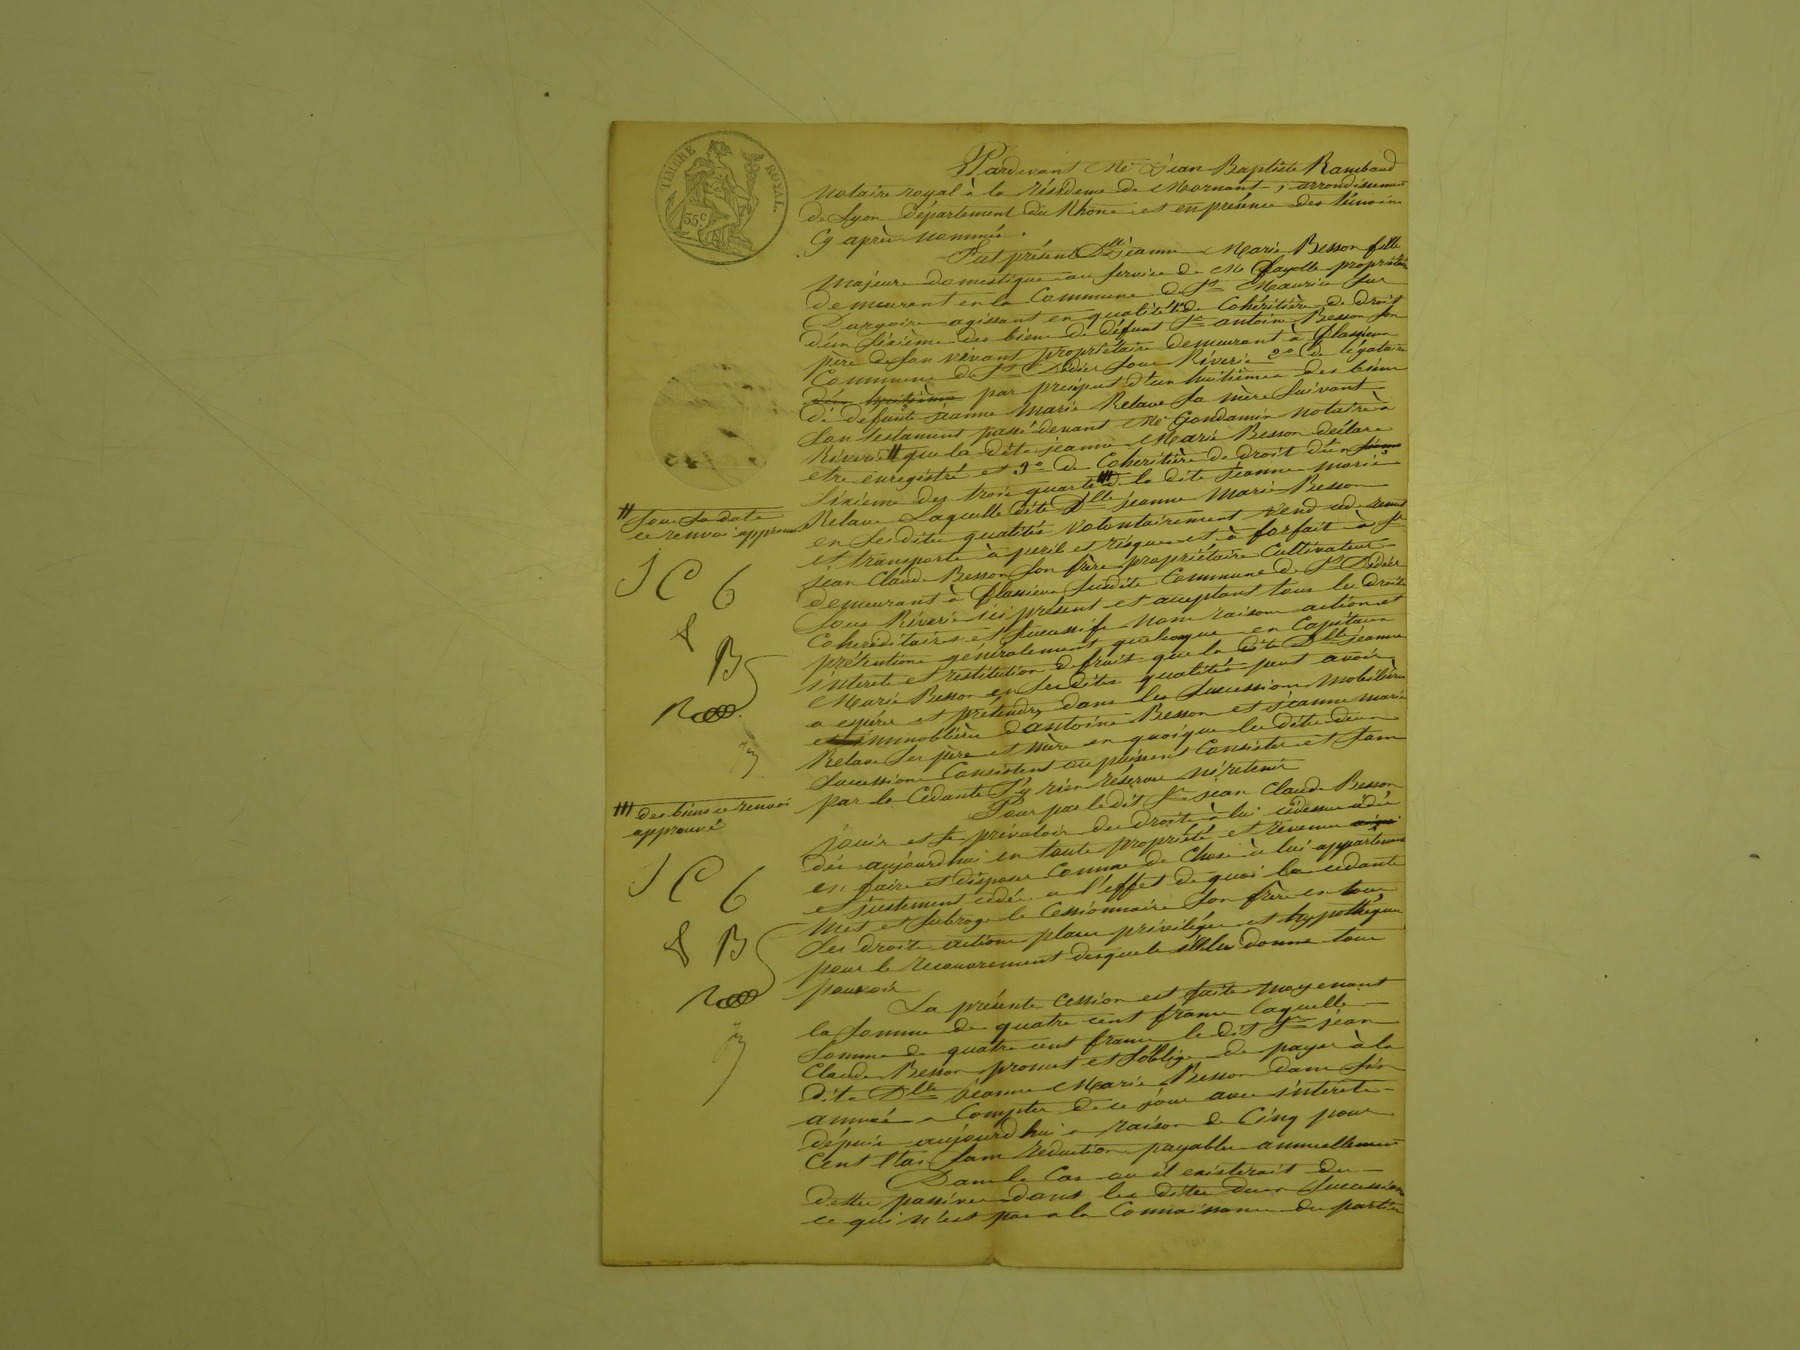 TIMBRE ROYAL.
35c
Pardevant Me Jean Baptiste Rambaud
Notaire royal à la résidence de Mornant, arrondissement
de Lyon département du Rhône et en présence des témoins
Cy après nommés.
Fut présent Dlle jeanne Marie Besson fille
Majeure domestique au service de Mr fayolle propriétaire
demeurant en la Commune de St Maurice sur
Dargoire agissant en qualité 1o de Cohéritière de droit
d'un sixième des biens de défunt Sr antoine Besson son
père de son vivant propriétaire demeurant à flassieux
Commune de St Didier sous Riverie 2o de légataire
d'un huitième par preciput d'un huitième des biens
de défunte jeanne Marie Relave sa mère suivant
son testament passé devant Me Gondamin Notaire à
Riverie que la dite jeanne Marie Besson déclare
etre enregistré et 3o de Coheritière de droit d'un
sixième des trois quarts de la dite jeanne marie
Relave Laquelle dite Dlle jeanne Marie Besson
en ses dites qualités volontairement vend cède remet
et transporte à peril et risques et à forfait à Sr
jean Claude Besson son frère propriétaire Cultivateur
demeurant à flassieux susdite Commune de St Didier
sous Riverie ici présent et acceptant tous les droits
Coheréditaires et sucessifs Nom raisons actions et
prétentions généralement quelconques en Capitaux
interets et restitution de fruits que la dite Dlle jeanne
Marie Besson en ses dites qualités peut avoir
a espérer et prétendre dans les sucessions Mobilières
et immoblières d'antoine Besson et jeanne marie
Relave ses père et mère en quoique les dites deux
sucessions Consistent ou puissent Consister et sans
par la Cédante s'y rien réserver ni retenir
Pour par le dit Sr jean Claude Besson
jouir et se prévaloir des droits à lui cidessus cédés
dès aujourd'hui en toute propriété et revenu
en faire et disposer Comme de Chose à lui appartenant
et justement cédée a l'effet de quoi la cédante
Met et subroge le Cessionnaire son frère en tous
ses droits actions places privilèges et hypothèques
pour le recouvrement desquels elle lui donne tous
pouvoirs
La présente Cession est faite moyenant
la somme de quatre cent francs laquelle
somme de quatre cent francs le dit Sr jean
Claude Besson promet et s'oblige de payer à la
dite Dlle jeanne Marie Besson dans six
années a Compter de ce jour avec interets
depuis aujourd'hui a raison de Cinq pour
Cent l'an sans réduction payables annuellement
Dans le Cas ou il existerait des
dettes passives dans les dites deux sucessions
ce qui n'est pas a la Connaissance des parties
sous sa date
ce renvoi approuvé
J C B
B
des biens ce renvoi
approuvé
J C B
B